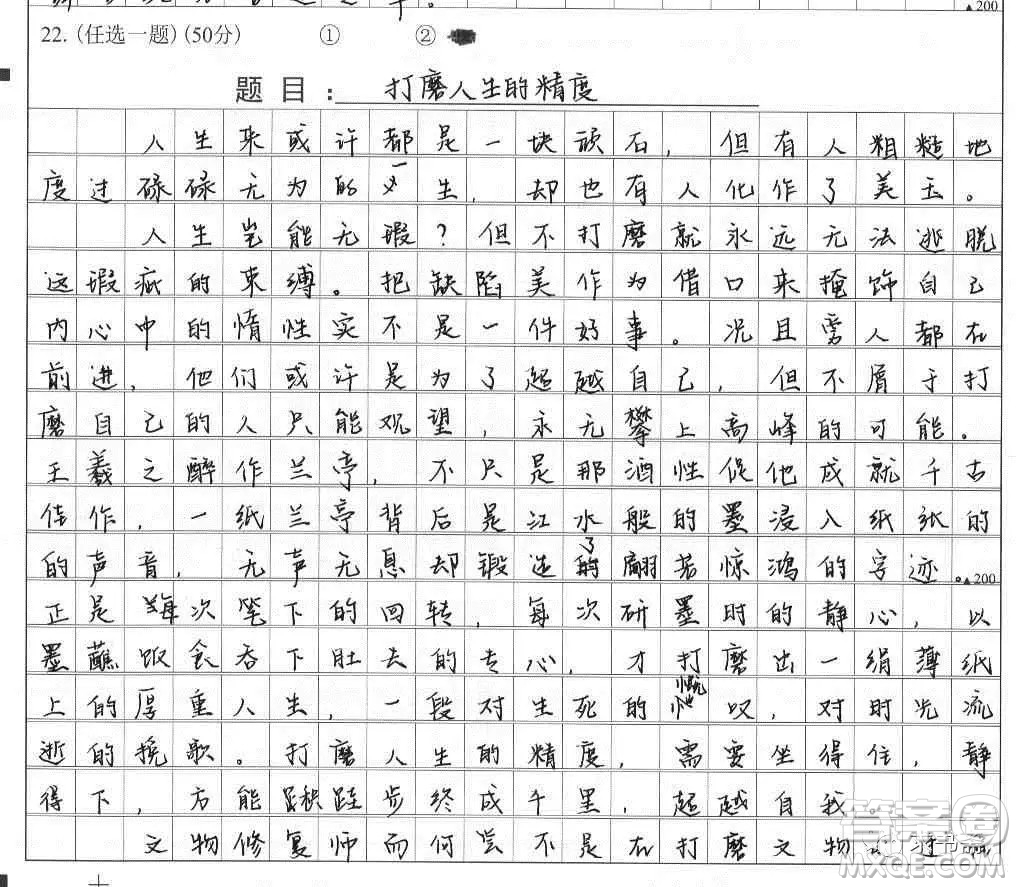 ▲200
22. (任选一题) (50分) ① ②
题目: 打磨人生的精度
人生来或许都是一块顽石,但有人粗糙地
度过碌碌无为的一生,却也有人化作了美玉。
人生岂能无瑕?但不打磨就永远无法逃脱
这瑕疵的束缚。把缺陷美作为借口来掩饰自己
内心中的惰性实不是一件好事。况且旁人都在
前进,他们或许是为了超越自己,但不屑于打
磨自己的人只能观望,永无攀上高峰的可能。
王羲之醉作兰亭,不只是那酒性促他成就千古
佳作,一纸兰亭背后是江水般的墨浸入纸张的
的声音,无声无息却锻造了翩若惊鸿的字迹。▲200
正是每次笔下的回转,每次研墨时的静心,以
墨蘸饭食吞下肚去的专心,才打磨出一绢薄纸
上的厚重人生,一段对生死的慨叹,对时光流
逝的挽歌。打磨人生的精度,需要坐得住,静
得下,方能跬步终成千里,超越自我。
文物修复师而何尝不是在打磨文物
答案圈
MXQE.COM